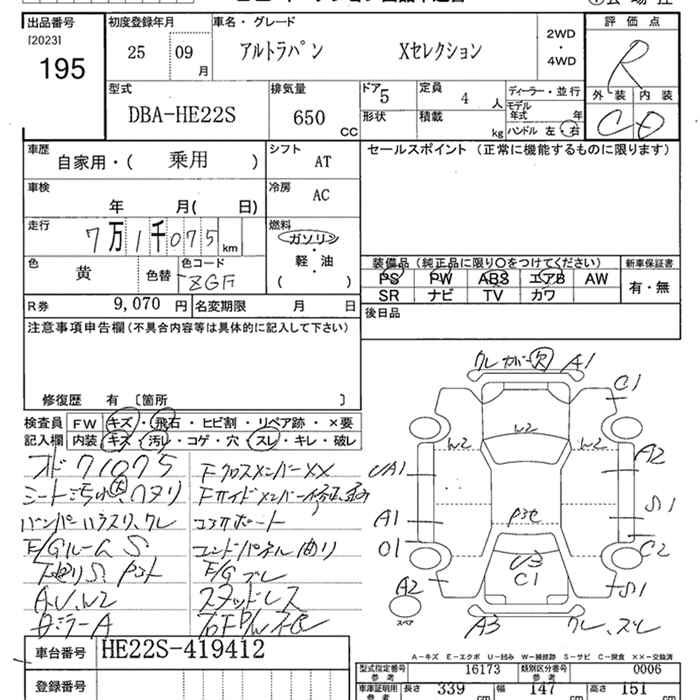 出品番号 初度登録年月 車名・グレード 評価点
[2023] 195
25 09 月
アルトラパン Xセレクション
2WD・4WD
R
型式 DBA-HE22S
排気量 650 CC
ドア 5 定員 4 人
形状 積載 kg
ディーラー・並行
モデル年式 年
ハンドル 左・右
外装 内装
C D
車歴 自家用・( 乗用 )
シフト AT
セールスポイント (正常に機能するものに限ります)
車検 年 月( 日)
冷房 AC
走行 7万1千075 km
燃料 ガソリン
軽・油
( )
色 黄 色替 色コード ZGF
装備品 (純正品に限り○をつけてください) 新車保証書
PS PW ABS エアB AW
SR ナビ TV カワ
有・無
R券 9,070 円 名変期限 月 日
後日品
注意事項申告欄(不具合内容等は具体的に記入して下さい)
修復歴 有 [箇所 ]
検査員 FW キズ・飛石・ヒビ割・リペア跡・×要
記入欄 内装 キズ・汚レ・コゲ・穴・スレ・キレ・破レ
オド71075
Fクロスメンバー××
コアサポート
E/Gルーム S
下廻りS
A U、W2
スタッドレス
Bミラー A
クレ カバー欠 A1
C1
W2 W2 W2
UA1 A2
A1 S1
O1 C2
U3
C1
A2 S1
スペア
A3 クレ、スレ
車台番号 HE22S-419412
登録番号
A-キズ E-エクボ U-凹み W-補修跡 S-サビ C-腐食 ××-交換済
型式指定番号 参考 16173 類別区分番号 参考 0006
車庫証明用 参考 長さ 339 cm 幅 147 cm 高さ 151 cm